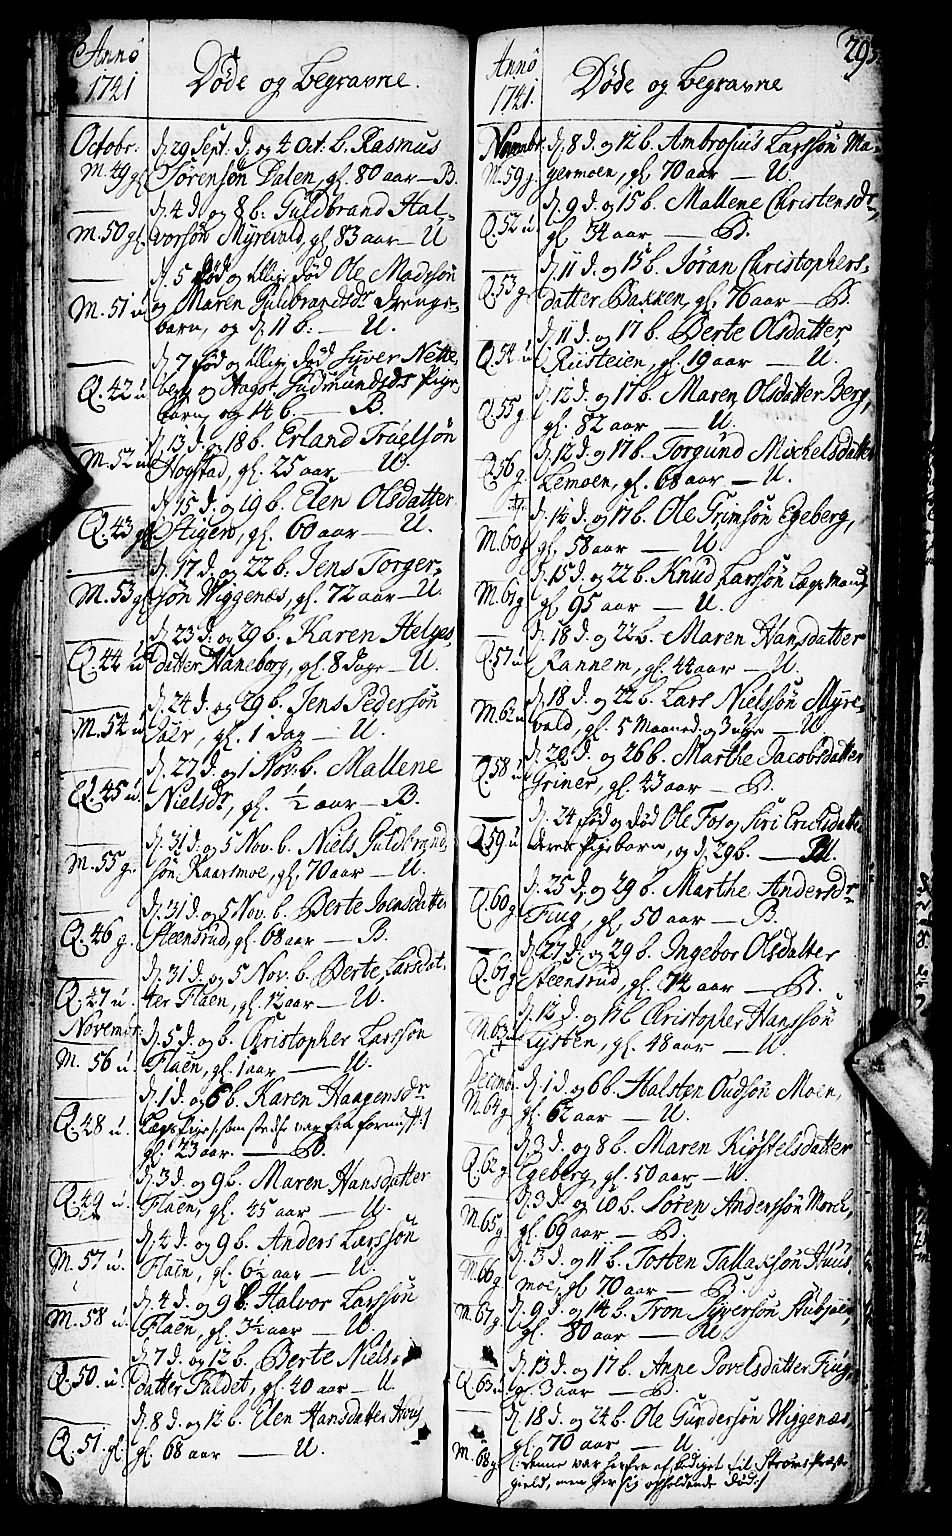 Anno
1741
Døde og begravne.
Octobr. d. 29 Sept. d. og 4 Oct. b. Rasmus
M. 49 g. Sørensøn Dalen, gl. 80 aar — B.
d. 4 d. og 8 b. Guldbrand Hal-
M. 50 gl. vorsøn Myrevold, gl. 83 aar — U
d. 5 fød og død Ole Madsøn
M. 51 u og Maren Guldbrandsdr drenge-
barn, og d. 11 b. — U.
d. 7 fød og død Syver Nette
Q. 42 u berg og Aagot Gudmundsdr Pige-
barn, og 14 b. — B.
d. 13 d. og 18 b. Erland Truelsøn
M. 52 u Hogstad, gl. 25 aar — U.
d. 15 d. og 19 b. Elen Olsdatter
Q. 43 g Stigen, gl. 60 aar — U.
d. 17 d. og 22 b. Jens Torger-
M. 53 g søn Wiggenæs, gl. 72 aar — U.
d. 23 d. og 29 b. Karen Helges
Q. 44 u datter Naneborg, gl. 8 dage — U.
d. 24 d. og 29 b. Jens Pedersøn
M. 54 u gl. 1 dag — U.
d. 27 d. og 1 Nov. b. Mallene
Q. 45 u. Nielsdr, gl. ½ aar — B.
d. 31 d. og 5 Nov. b. Niels Guldbrand-
M. 55 g. søn Kaarsmoe, gl. 70 aar — U.
d. 31 d. og 5 Nov. b. Berte Joensdatter
Q. 46 g. Steensrud, gl. 68 aar — B.
d. 31 d. og 5 Nov. b. Berte Larsdat-
Q. 47 u. ter Flaen, gl. 12 aar — U.
Novembr. d. 5 d. og b. Christopher Larssøn
M. 56 u Flaen, gl. 1 aar — U.
d. 1 d. og 6 b. Karen Haagensdr
Q. 48 u.
gl. 23 aar. — B.
d. 3 d. og 9 b. Maren Hansdatter
Q. 49 u. Flaen, gl. 45 aar — U.
d. 4 d. og 9 b. Anders Larssøn
M. 57 u. Flaen, gl. 6½ aar — U.
d. 4 d. og 9 b. Halvor Larssøn
M. 58 u. Flaen, gl. 3½ aar — U.
d. 7 d. og 12 b. Berte Niels-
Q. 50. u. datter Faldet, gl. 40 aar — U
d. 8 d. og 12 b. Elen Hansdatter
Q. 51. gl. gl. 68 aar — U.
295
Anno
1741.
Døde og begravne
Novembr. d. 8 d. og 12 b. Ambrosius Larssøn Ma-
M. 59 g. germoen, gl. 70 aar — U.
d. 9 d. og 15 b. Mallene Christensdr,
Q. 52 u. gl. 34 aar — B.
d. 11 d. og 15 b. Jøran Christophers-
Q. 53 g. datter Bakken, gl. 76 aar — B.
d. 11 d. og 17 b. Berte Olsdatter
Q. 54 u Riisteien, gl. 19 aar — U.
d. 12 d. og 17 b. Maren Olsdatter Berg,
Q. 55 g gl. 82 aar — U.
d. 12 d. og 17 b. Torgund Michelsdatter
Q. 56 g. Lemoen, gl. 68 aar — U.
d. 14 d. og 17 b. Ole Grimsøn Egeberg,
M. 60 g gl. 58 aar — U.
d. 15 d. og 22 b. Knud Larssøn
M. 61 g gl. 95 aar — U.
d. 18 d. og 22 b. Maren Hansdatter
Q. 57 u. Rannem, gl. 44 aar — U.
d. 18 d. og 22 b. Lars Nielsøn Myre-
M. 62 u. vold, gl. 5 Maaned og 3 uger — U
d. 22 d. og 26 b. Marthe Jacobsdatter
Q. 58 u Griner, gl. 43 aar — B.
d. 24 fød og død Ole Fos og Siri Erichsdatter
Q. 59 u deres Pigebarn, og d. 29 b. — U.
d. 25 d. og 29 b. Marthe Andersdr
Q. 60 g Fiug, gl. 50 aar — B.
d. 27 d. og 29 b. Ingebor Olsdatter
Q. 61 g Steensrud, gl. 74 aar — B.
d. 12 d. og 17 b. Christopher Hanssøn
M. 63 Lysten, gl. 48 aar — U.
Decembr. d. 1 d. og 6 b. Halsten Gudsøn Moen,
M. 64 g gl. 62 aar — U.
d. 3 d. og 8 b. Maren Kiøstelsdatter
Q. 62 g. Egeberg, gl. 50 aar — U.
d. 3 d. og 10 b. Søren Anderssøn Morck,
M. 65 g gl. 69 aar — B.
d. 3 d. og 11 b. Tosten Tallaksøn Huus-
M. 66 g moe, gl. 70 aar — B.
d. 9 d. og 14 b. Tron Syversøn
M. 67 g. gl. 80 aar — U
d. 13 d. og 17 b. Anne Povelsdatter Fiug,
Q. 63 u gl. 3 aar — B.
d. 18 d. og 24 b. Ole Gundersøn Wiggenæs,
gl. 70 aar — U
M. 68 g denne var herfra til Strøms Præste-
gield, men her sig opholdende død